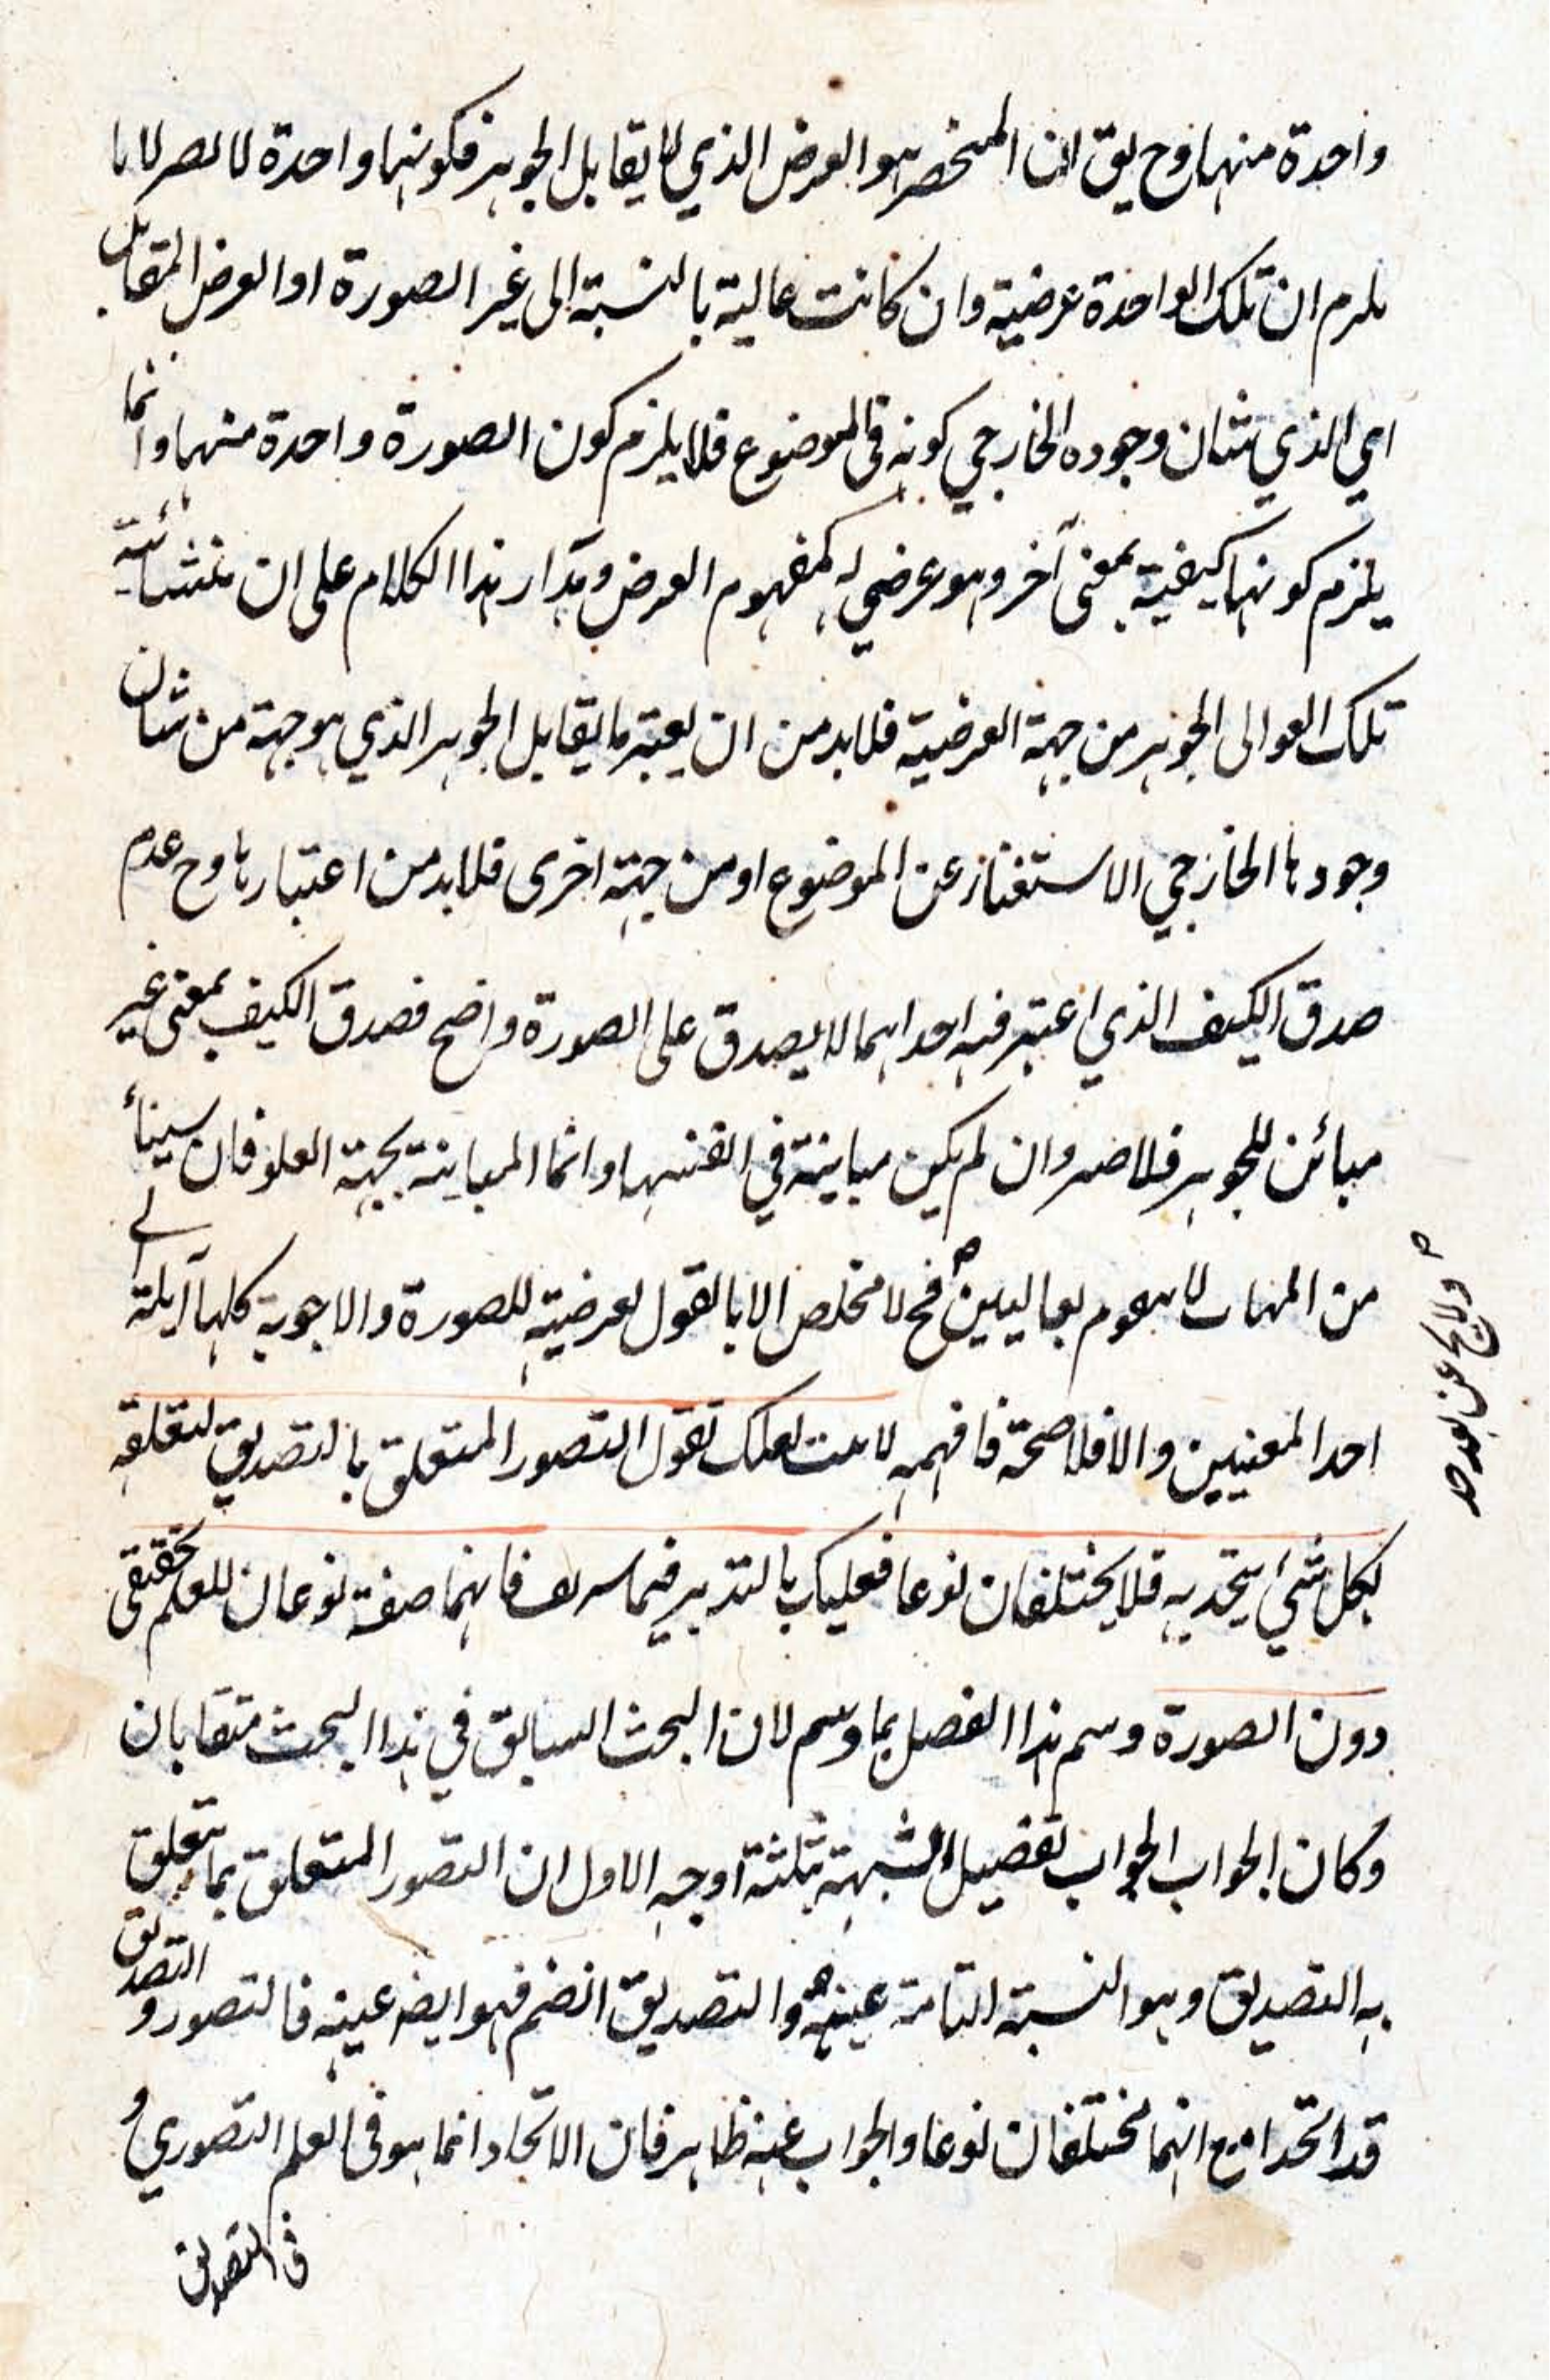 واحدة منها وح يق ان المنحصر هو العرض الذي لا يقابل الجوهر فكونها واحدة لا لا
يلزم ان تلك الواحدة عرضية وان كانت عالية بالنسبة الى غير الصورة او العرض المقابل
اي الذي شان وجوده الخارجي كونه في الموضوع فلا يلزم كون الصورة واحدة منها وانما
يلزم كونها كيفية بمعنى آخر وهو عرضي له كمفهوم العرض ومدار هذا الكلام على ان
تلك العوالى الجوهر من جهة العرضية فلا بد من ان يعتبر ما يقابل الجوهر الذي هو جهة من شان
وجودها الخارجي الاستغناء عن الموضوع او من جهة اخرى فلا بد من اعتبارها وح عدم
صدق الكيف الذي اعتبر فيه احداهما لا يصدق على الصورة واضح فصدق الكيف بمعنى غير
مبائن للجوهر فلا ضير وان لم يكن مباينة في انفسها وانما المباينة بجهة العلو فان
من فح لا مخلص الا بالقول بعرضية للصورة والاجوبة كلها آيلة الى
احد المعنيين والا فلا صحة فافهمه لعلك تقول التصور المتعلق بالتصديق لتعلقه
بكل شيء يتحد به فلا يختلفان نوعا فعليك بالتدبر فيما فانهما صفة نوعان للعلم حقيقى
دون الصورة وسم هذا الفصل بما وسم لان البحث السابق في هذا البحث متقابان
وكان الجواب الجواب تفصيل الشبهة بثلثة اوجه الاول ان التصور المتعلق بما يتعلق
به التصديق وهو النسبة التامة عينه والتصديق انضم فهو ايضا عينه فالتصور والتصديق
قد اتحدا مع انهما مختلفان نوعا والجواب عنه ظاهر فان الاتحاد انما هو في العلم التصوري و
في التصديق